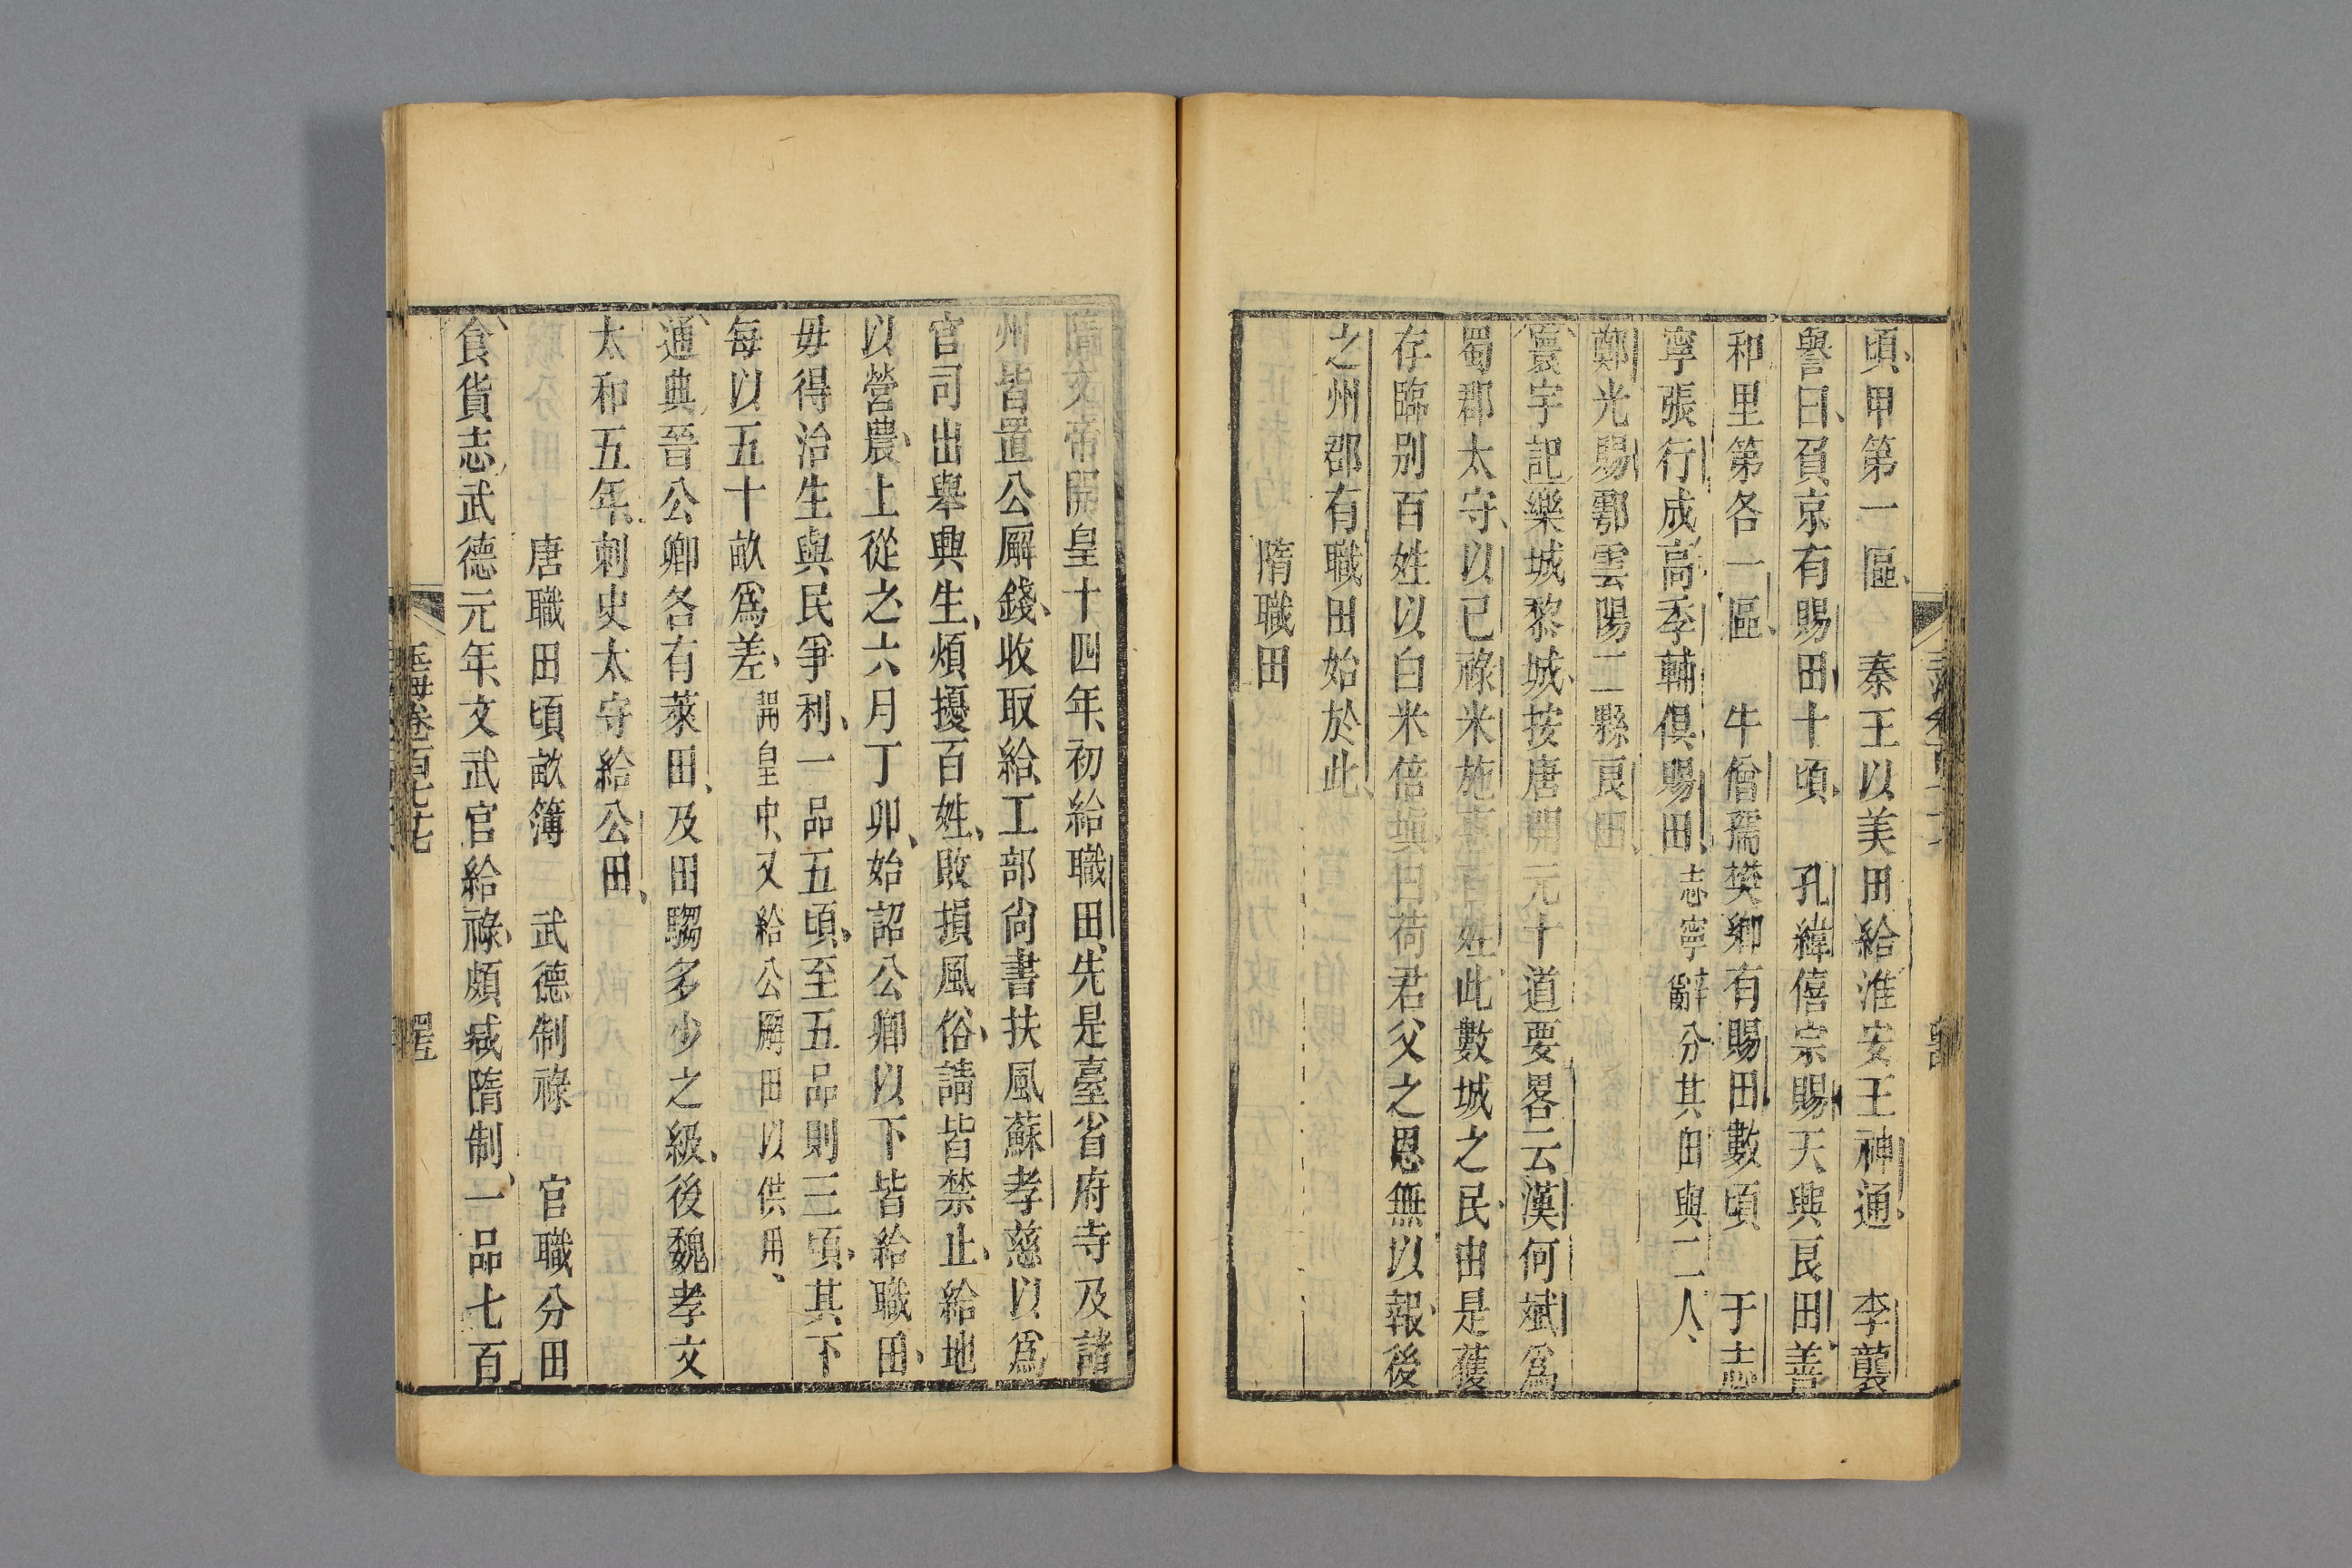 頃、甲第一區、　秦王以美田給淮安王神通、　李襲
譽曰、負京有賜田十頃、　孔緯僖宗賜天興良田善
和里第各一區、　牛僧孺樊鄉有賜田數頃　于志
寧張行成高季輔俱賜田、志寧辭分其田與二人、
鄭光賜鄠雲陽二縣良田、
寰宇記樂城黎城、按唐開元十道要畧云漢何斌爲
蜀郡太守、以已祿米施惠百姓、此數城之民、由是獲
存臨别百姓以白米倍塡曰荷君父之恩無以報、後
之州郡有職田始於此、
隋職田
隋文帝開皇十四年、初給職田、先是臺省府寺及諸
州皆置公廨錢、收取給、工部尚書扶風蘇孝慈以爲
官司出舉興生、煩擾百姓、敗損風俗、請皆禁止、給地
以營農、上從之六月丁卯、始詔公卿以下皆給職田、
毋得治生與民爭利、一品五頃、至五品則三頃、其下
每以五十畝爲差、開皇中、又給公廨田以供用、
通典、晉公卿各有菜田、及田騶多少之級、後魏孝文
太和五年、刺史太守給公田、
唐職田頃畝簿　武德制祿　官職分田
食貨志、武德元年、文武官給祿、頗減隋制、一品七百
玉海卷一百七十七